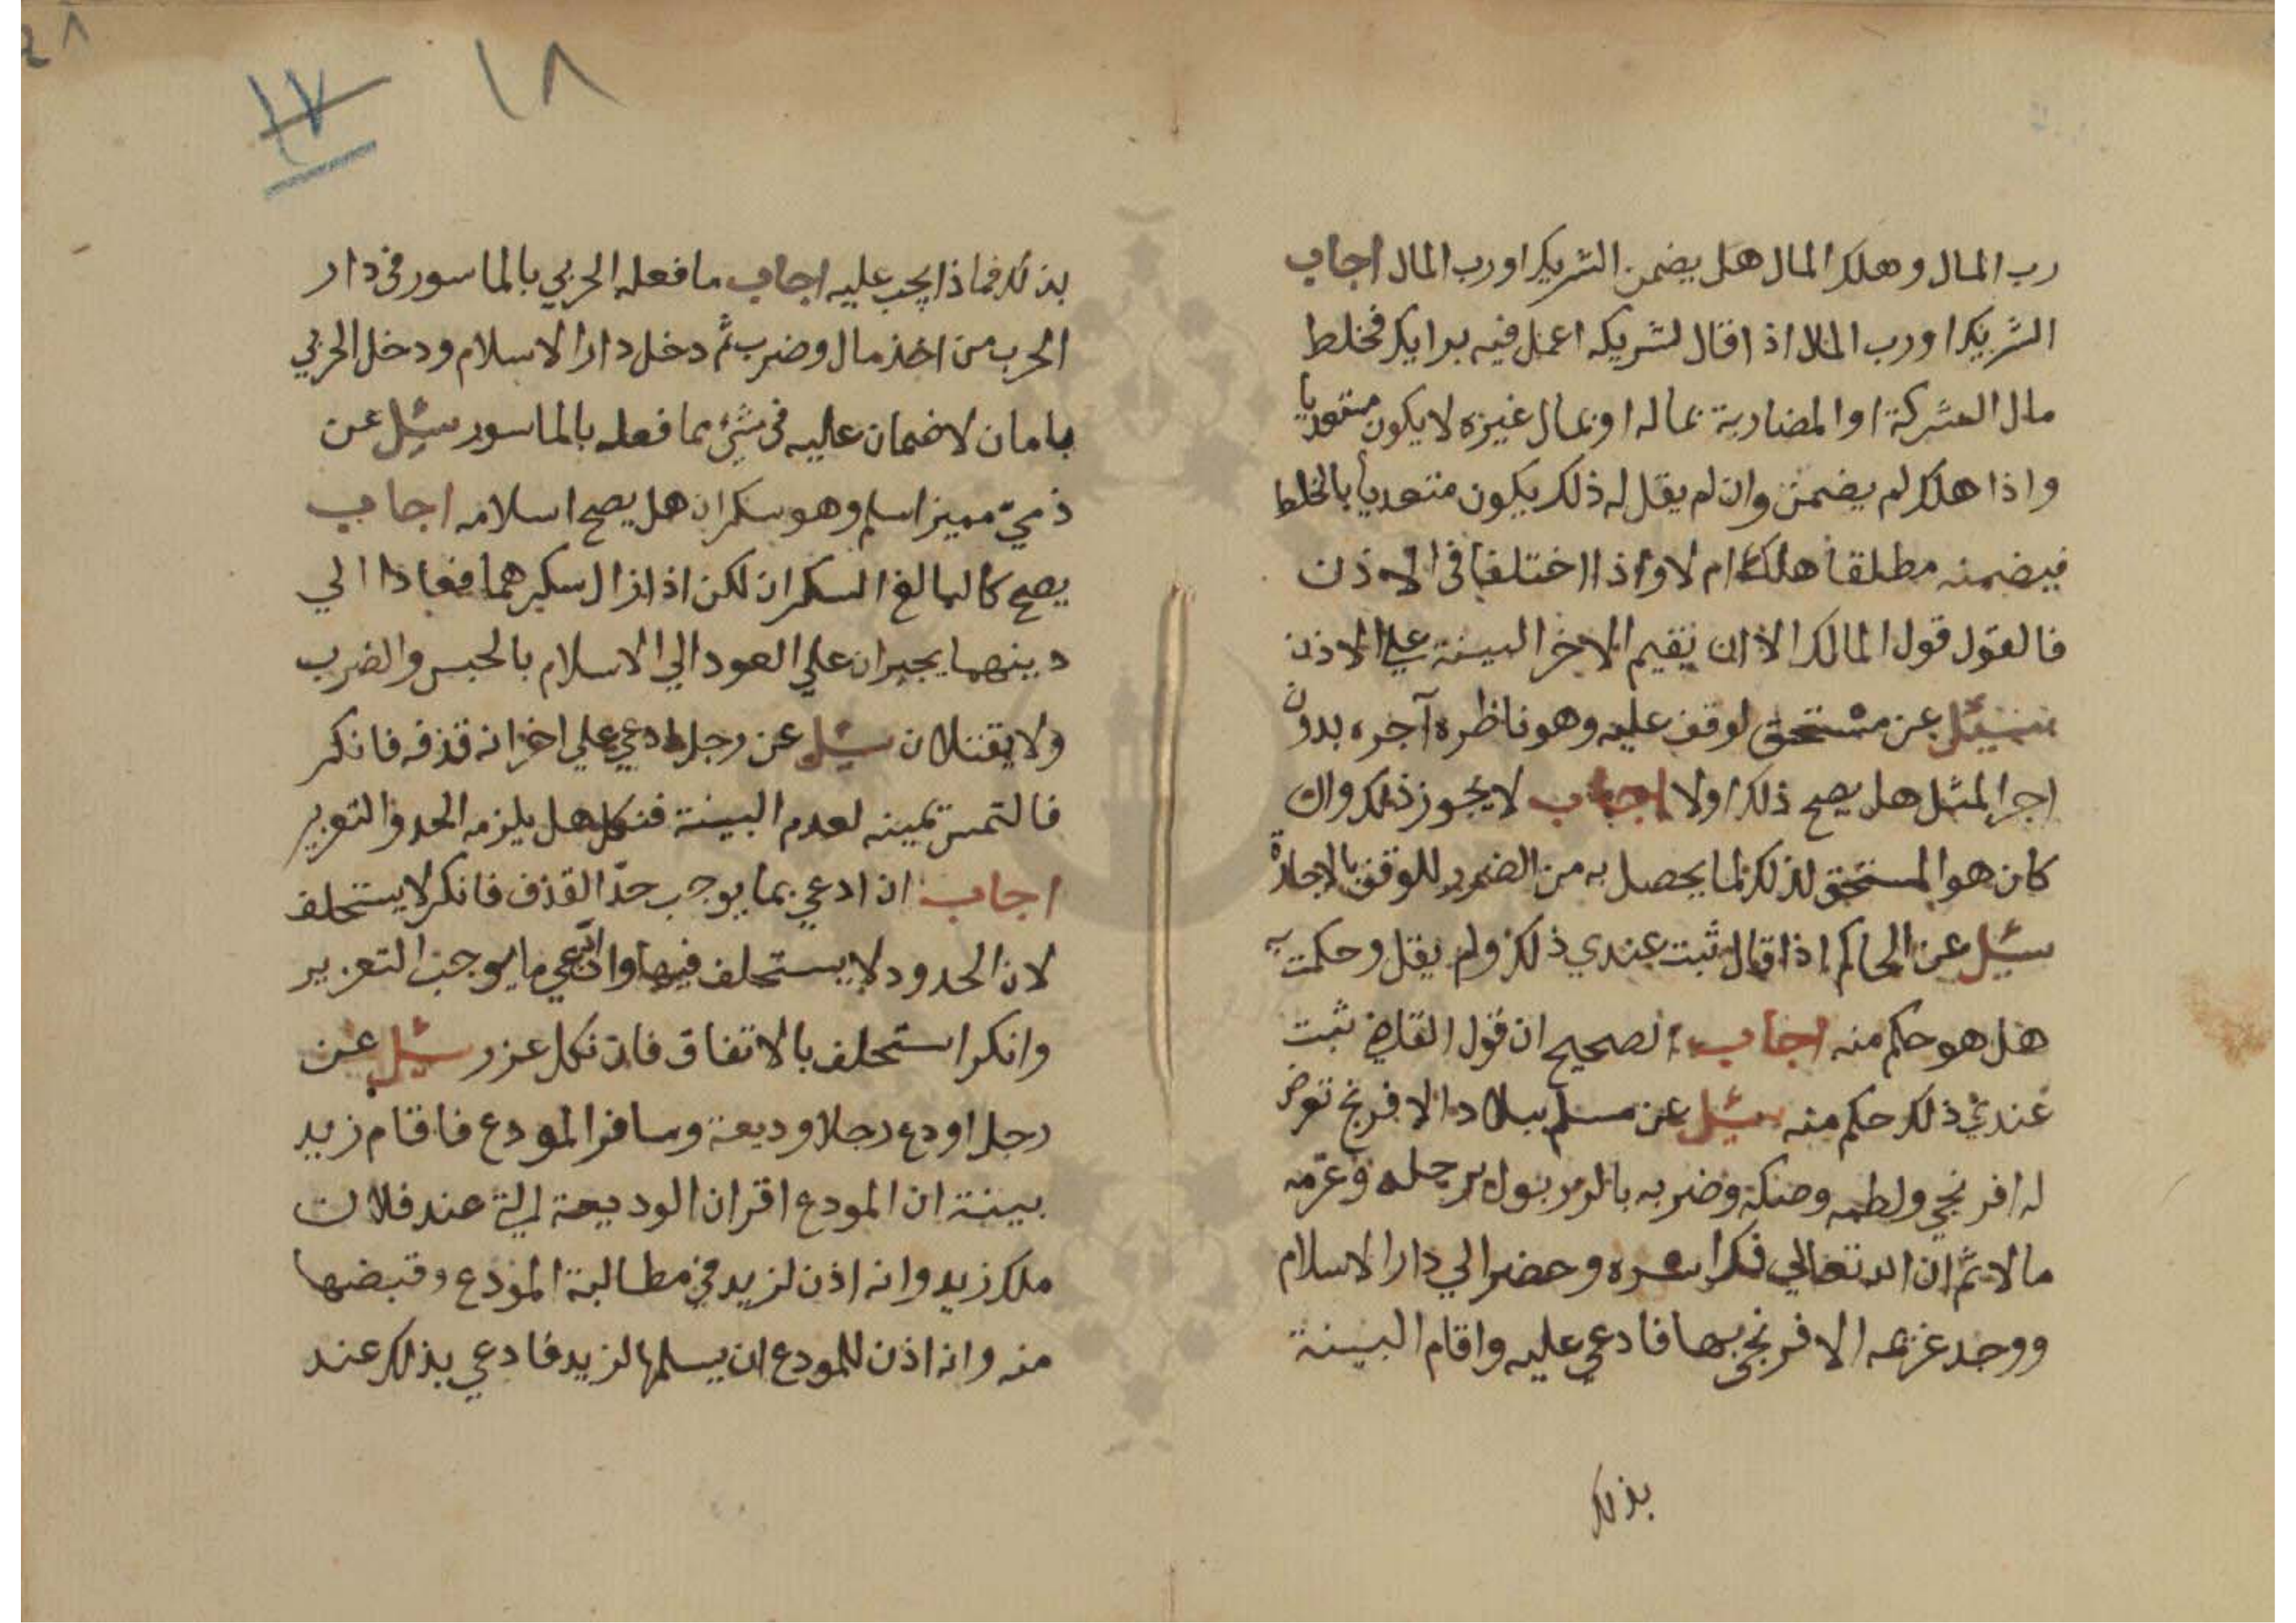 رب المال وهلك المال هل يضمن الشريك او رب المال اجاب
الشريك او رب المال اذا قال لشريكه اعمل فيه برايك فخلط
مال الشركة او المضاربة بماله او بمال غيره لا يكون متعديا
واذا هلك لم يضمن وان لم يقل له ذلك يكون متعديا بالخلط
فيضمنه مطلقا هلك ام لا واذا اختلفا في الاذن
فالقول قول المالك الا ان يقيم الاخر البينة علي الاذن
سئل عن مستحق لوقف عليه وهو ناظره آجره بدون
اجر المثل هل يصح ذلك اولا اجاب لا يجوز ذلك وان
كان هو المستحق لذلك لما يحصل به من الضرر للوقف بالاجارة
سئل عن الحاكم اذا قال ثبت عندي ذلك ولم يقل وحكمت به
هل هو حكم منه اجاب الصحيح ان قول القاضي ثبت
عندي ذلك حكم منه سئل عن مسلم ببلاد الافرنج تعرض
له افرنجي ولطمه وصكه وضربه برجله وغرمه
مالا ثم ان الله تعالي فك اسره وحضر الي دار الاسلام
ووجد غريمه الافرنجي بها فادعي عليه واقام البينة
بذلك
١٨
١٧
بذلك فماذا يجب عليه اجاب ما فعله الحربي بالماسور في دار
الحرب من اخذ مال وضرب ثم دخل دار الاسلام ودخل الحربي
بامان لا ضمان عليه في شيء مما فعله بالماسور سئل عن
ذمي مميز اسلم وهو سكران هل يصح اسلامه اجاب
يصح كالبالغ السكران لكن اذا زال سكرهما فعادا الي
دينهما يجبران علي العود الي الاسلام بالحبس والضرب
ولا يقتلان سئل عن رجل ادعي علي اخر انه قذفه فانكر
فالتمس يمينه لعدم البينة فنكل هل يلزمه الحد والتعزير
اجاب ان ادعي بما يوجب حد القذف فانكر لا يستحلف
لان الحدود لا يستحلف فيها وان ادعي ما يوجب التعزير
وانكر استحلف بالاتفاق فان نكل عزر سئل عن
رجل اودع رجلا وديعة وسافر المودع فاقام زيد
بينة ان المودع اقر ان الوديعة التي عند فلان
ملك زيد وانه اذن لزيد في مطالبة المودع وقبضها
منه وانه اذن للمودع ان يسلمها لزيد فادعي بذلك عند